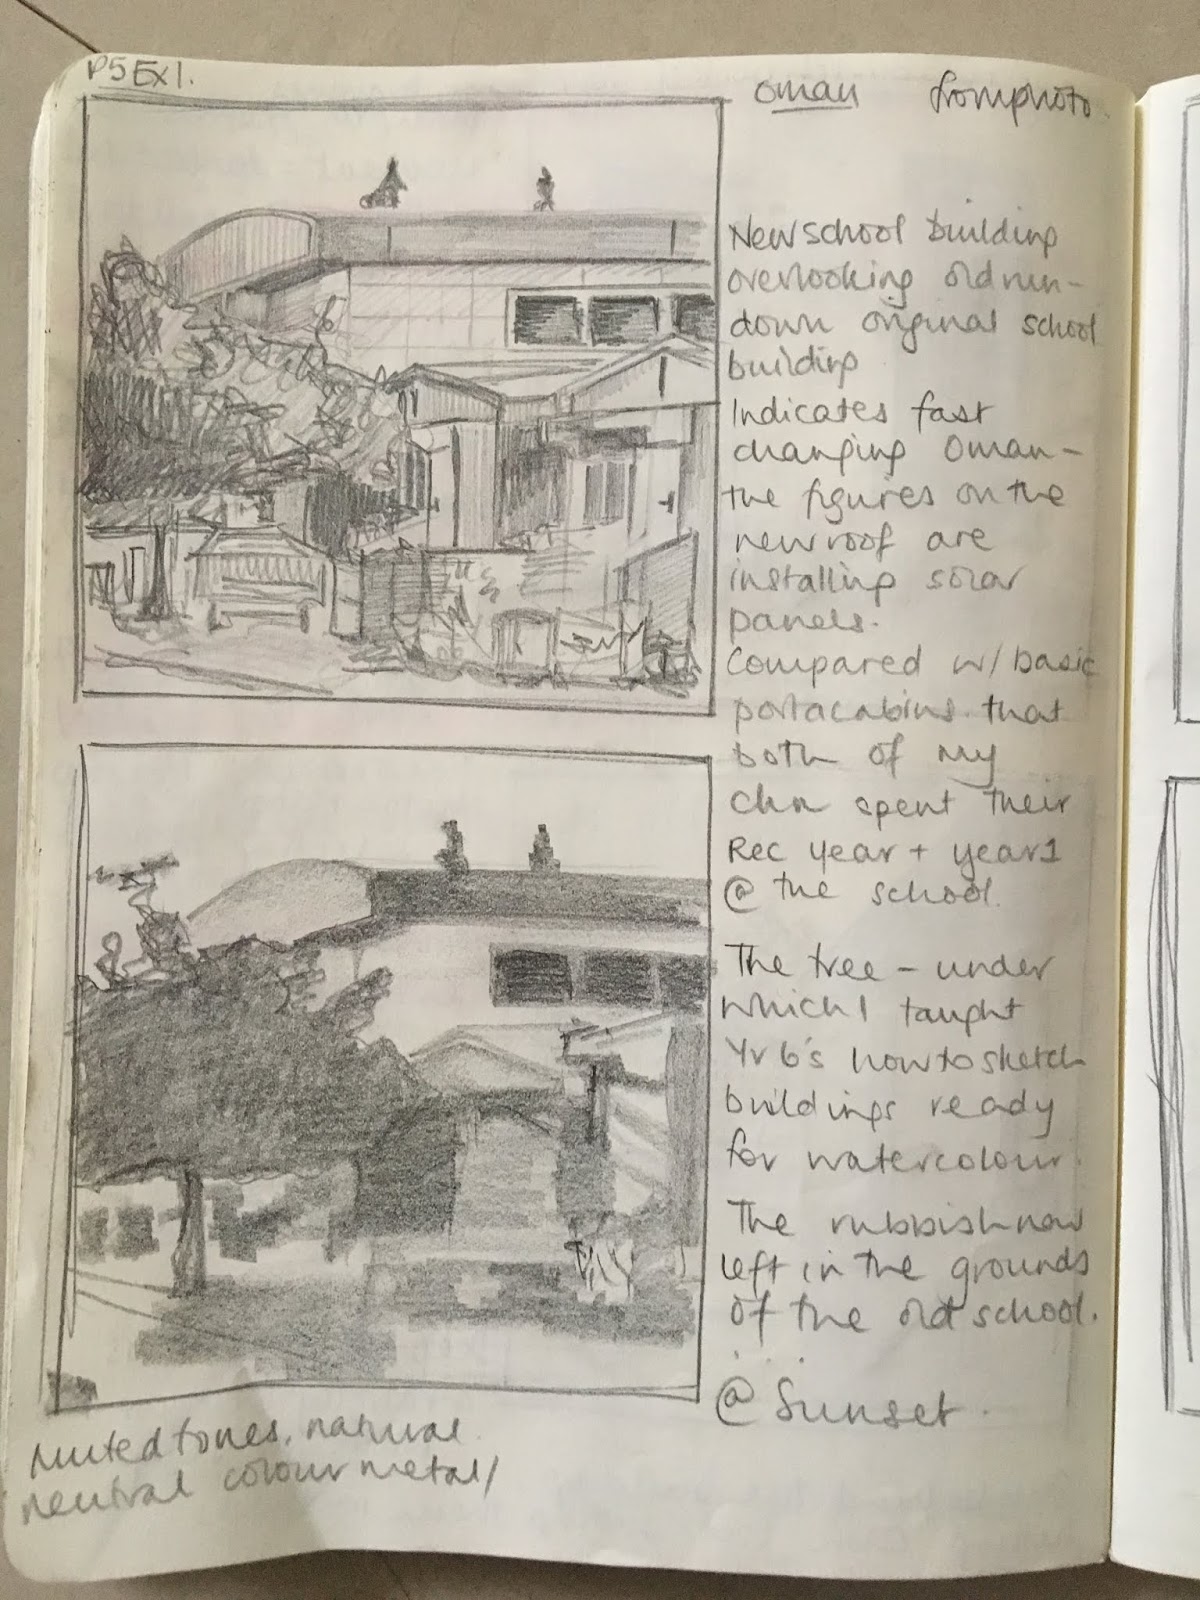 P5 Ex1.
Oman from photo.
New school building
overlooking old run-
down original school
building
Indicates fast
changing Oman -
the figures on the
new roof are
installing solar
panels.
Compared w/ basic
portacabins that
both of my
chn spent their
Rec year + year 1
@ the school.
The tree - under
which I taught
Yr 6's how to sketch
buildings ready
for watercolour.
The rubbish now
left in the grounds
of the old school.
. . .
@ Sunset.
Muted tones, natural
neutral colour metal/